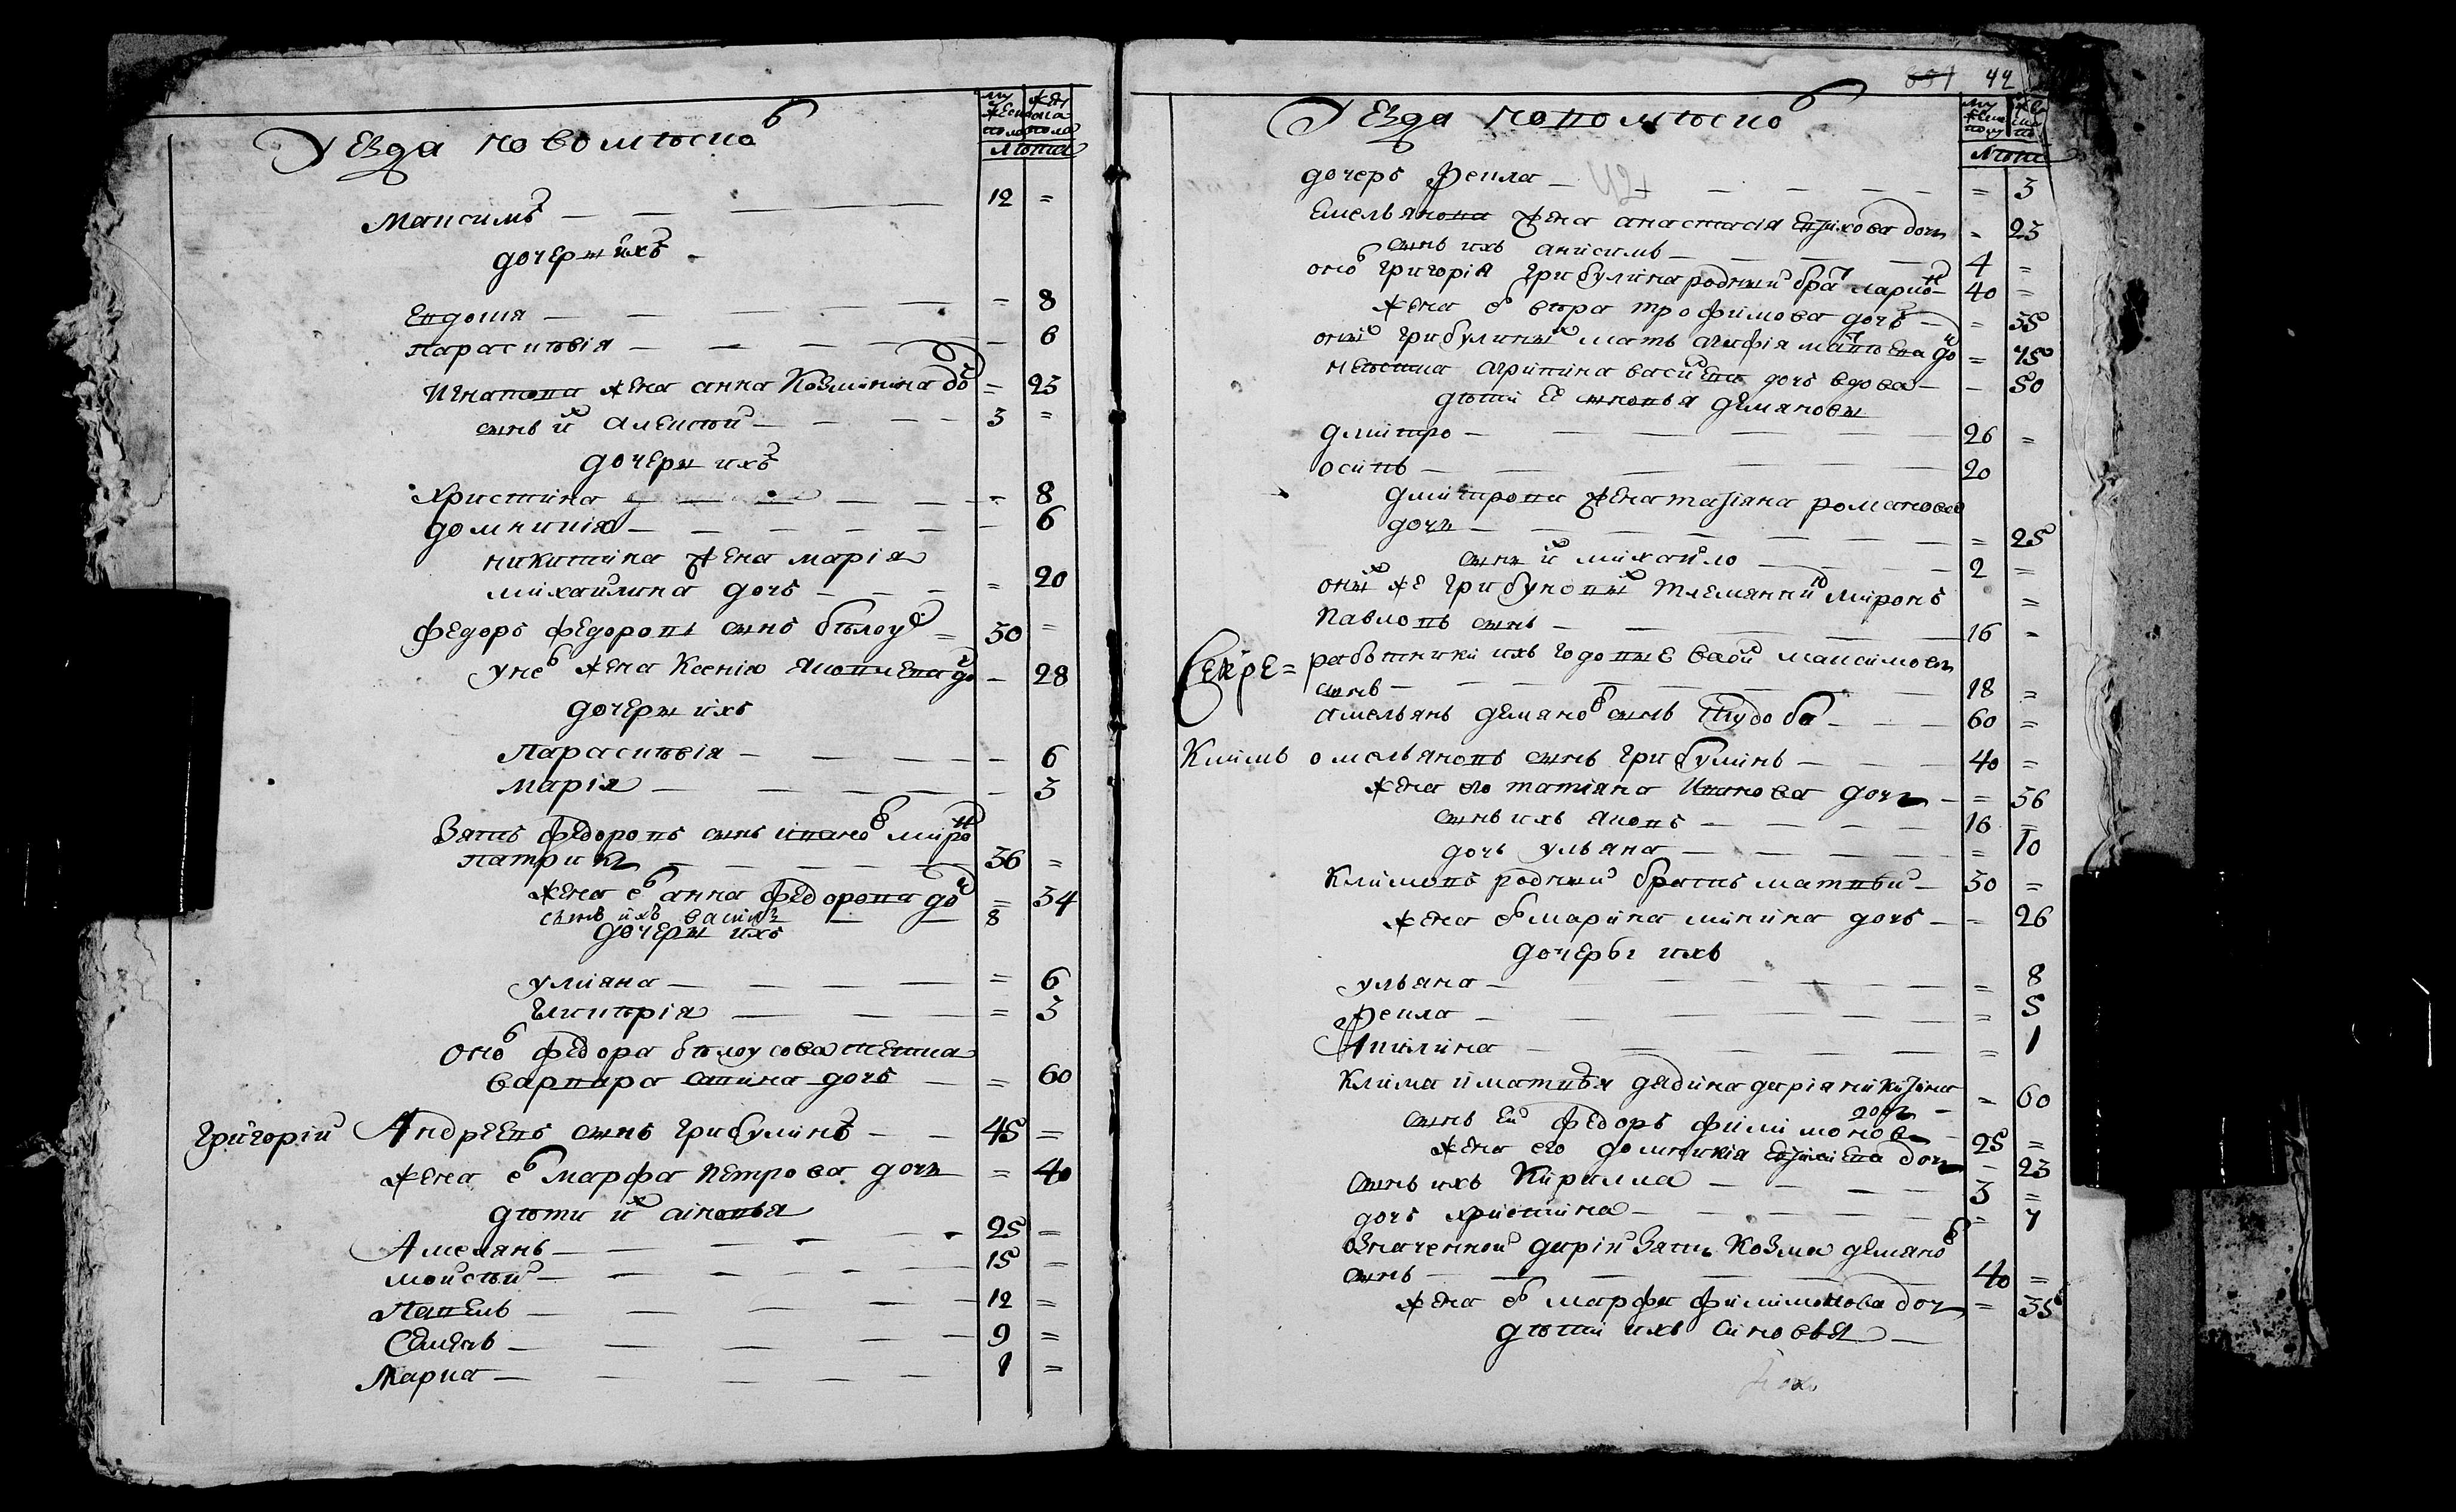 мужеска пола женска пола
лѣта
уезда новомлѣско
Максимъ — 12 =
дочери ихъ
Евдокия — = 8
параскѣвія — 6
Игнатова жена анна Козминина до = 23
сынъ и алексѣй — 3 =
дочери ихъ
христина — = 8
домникія — 6
никитина жена марія
михайлина дочъ — = 20
Федоръ федоровъ сынъ бѣлоус = 50 =
у не жена Ксенія яковлева до — 28
дочери ихъ
параскѣвія — 6
марія — 3
Зять федоровъ сынъ ивано миро
патрик — 36 =
жена е анна федорова доч = 34
сынъ ихъ василъ — 8
дочери ихъ
улияна — = 6
Гликѣрія — = 3
оно федора бѣлоусова тещка
варвара дочъ — = 60
григорій Андрѣевъ сынъ грибулинъ — 45 =
жена е марфа петрова дочъ = 40
дѣти и синовья
Амелянъ — 25 =
мойсѣй — 15 =
Павелъ — 12 =
Семенъ — 9 =
Марка — 1 =
851 42
лѣта
уезда новомлѣско
дочеръ Фекла — = 3
Емельянова жена анастасія дочъ = 23
сынъ ихъ анисимъ — 4 =
оно григорія грибулина родный бра ларио — 40 =
жена е вѣра трофимова дочъ — = 35
оны грибулины мать агафія до = 75
невѣстка агрипина васи дочъ вдова — 50
дѣти еѣ синовья демяновы
дмитро — 26 =
осипъ — 20
дмитрова жена татіяна романова
дочъ — = 25
сынъ и михайло — 2 =
оны же грибуновы племянни миронъ =
Павловъ сынъ — 16 =
работники ихъ годовые васи максимовъ
сынъ — 18 =
амельянъ демяно сынъ — 60 =
Климъ омельяновъ сынъ грибулинъ — 40 =
жена его татіяна Иванова дочъ — = 36
сынъ ихъ яковъ — 16 =
дочъ ульяна — = 10
Климовъ родный братъ матвѣй — 30 =
жена е марина минина дочъ — = 26
дочеры ихъ
ульяна — = 8
Фекла — = 5
Акилина — = 1
Клима и матвѣя дядина дарія никитина
дочъ — = 60
сынъ ей федоръ филимонов — 25 =
жена его домникія дочъ — 23
сынъ ихъ Кирилла — 3 =
дочъ христина — = 7
означенной дарии зять Козма демяно
сынъ — 40 =
жена е марфа филимонова доч = 35
дѣти ихъ синовья —